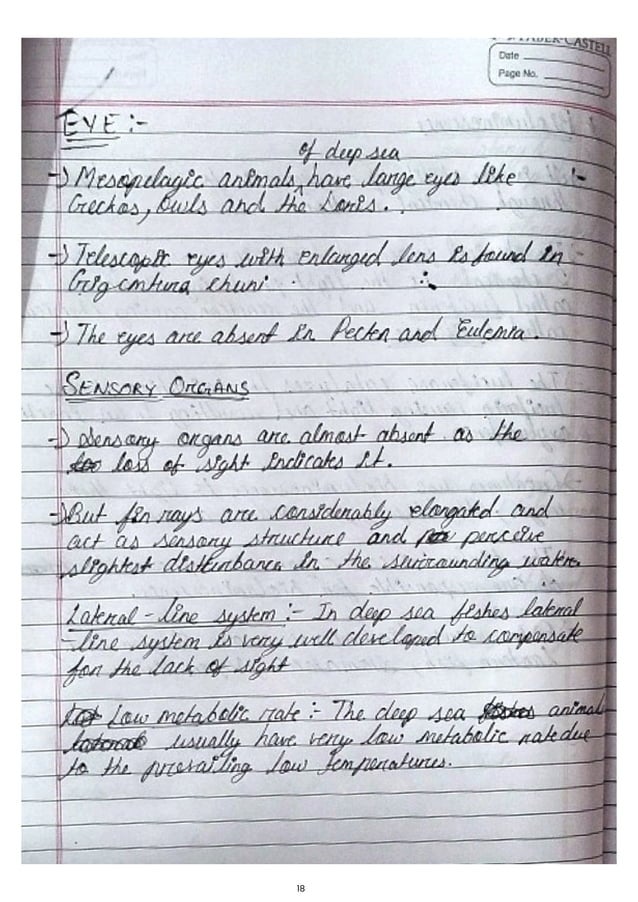 FABER-CASTELL
Date
Page No.
EYE :-
of deep sea
→ Mesopelagic animals, have large eyes like :-
Geckos, Owls and the Loris.
→ Telescopic eyes with enlarged lens is found in
Gigentura chuni
→ The eyes are absent in Pecten and Eulemia.
SENSORY ORGANS
→ Sensory organs are almost absent as the
loss of sight indicates it.
→ But fin rays are considerably elongated and
act as sensory structure and perceive
slightest disturbance in the surrounding water.
Lateral-line system :- In deep sea fishes lateral
-line system is very well developed to compensate
for the lack of sight
Low metabolic rate :- The deep sea fishes animal
lateral usually have very low metabolic rate due
to the prevailing low temperatures.
18